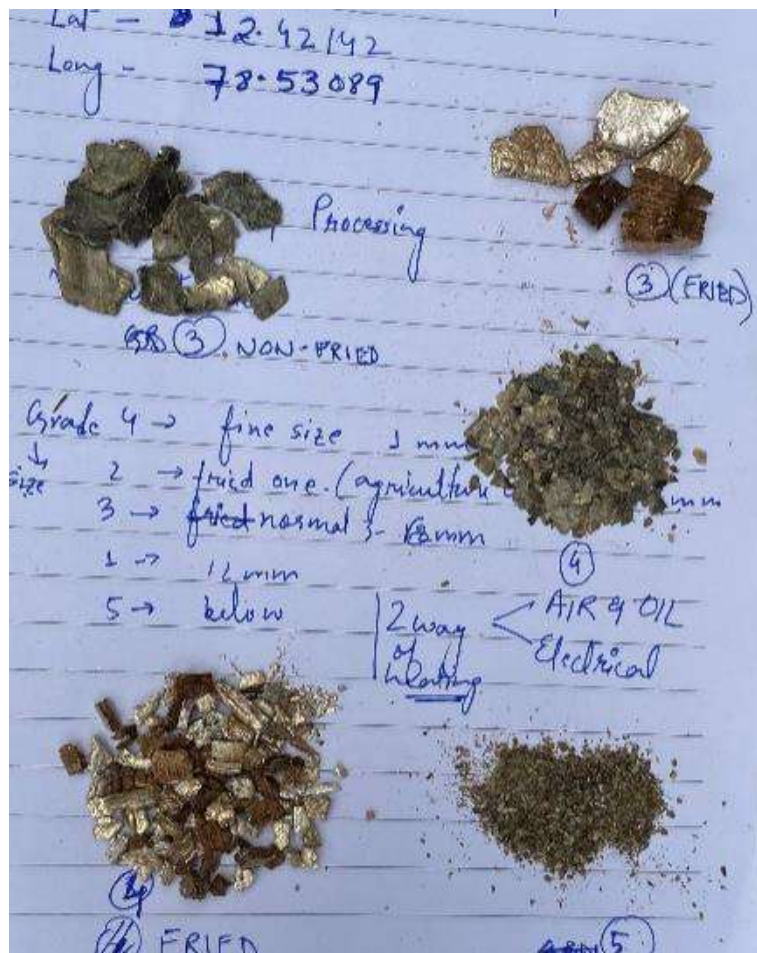 Lat - 12.42142
Long - 78.53089
Processing
3 (FRIED)
3 NON-FRIED
Grade 4 → fine size 1 mm
↓
size 2 → fried one. (agriculture mm
3 → fried normal mm
1 → 12 mm
5 → below
4
2 way
of
heating
AIR & OIL
Electrical
4
FRIED
5